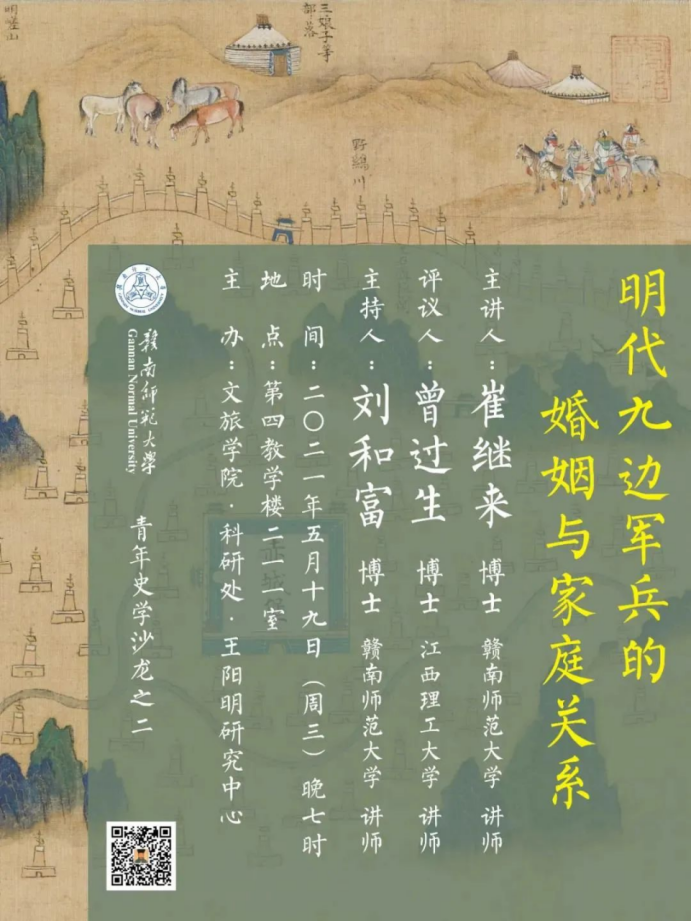 明代九边军兵的
婚姻与家庭关系
主讲人：崔继来 博士 赣南师范大学 讲师
评议人：曾过生 博士 江西理工大学 讲师
主持人：刘和富 博士 赣南师范大学 讲师
时 间：二〇二一年五月十九日（周三）晚七时
地 点：第四教学楼二一一室
主 办：文旅学院·科研处·王阳明研究中心
赣南师范大学
Gannan Normal University
青年史学沙龙之二
三娘子等
部落
野鹅川